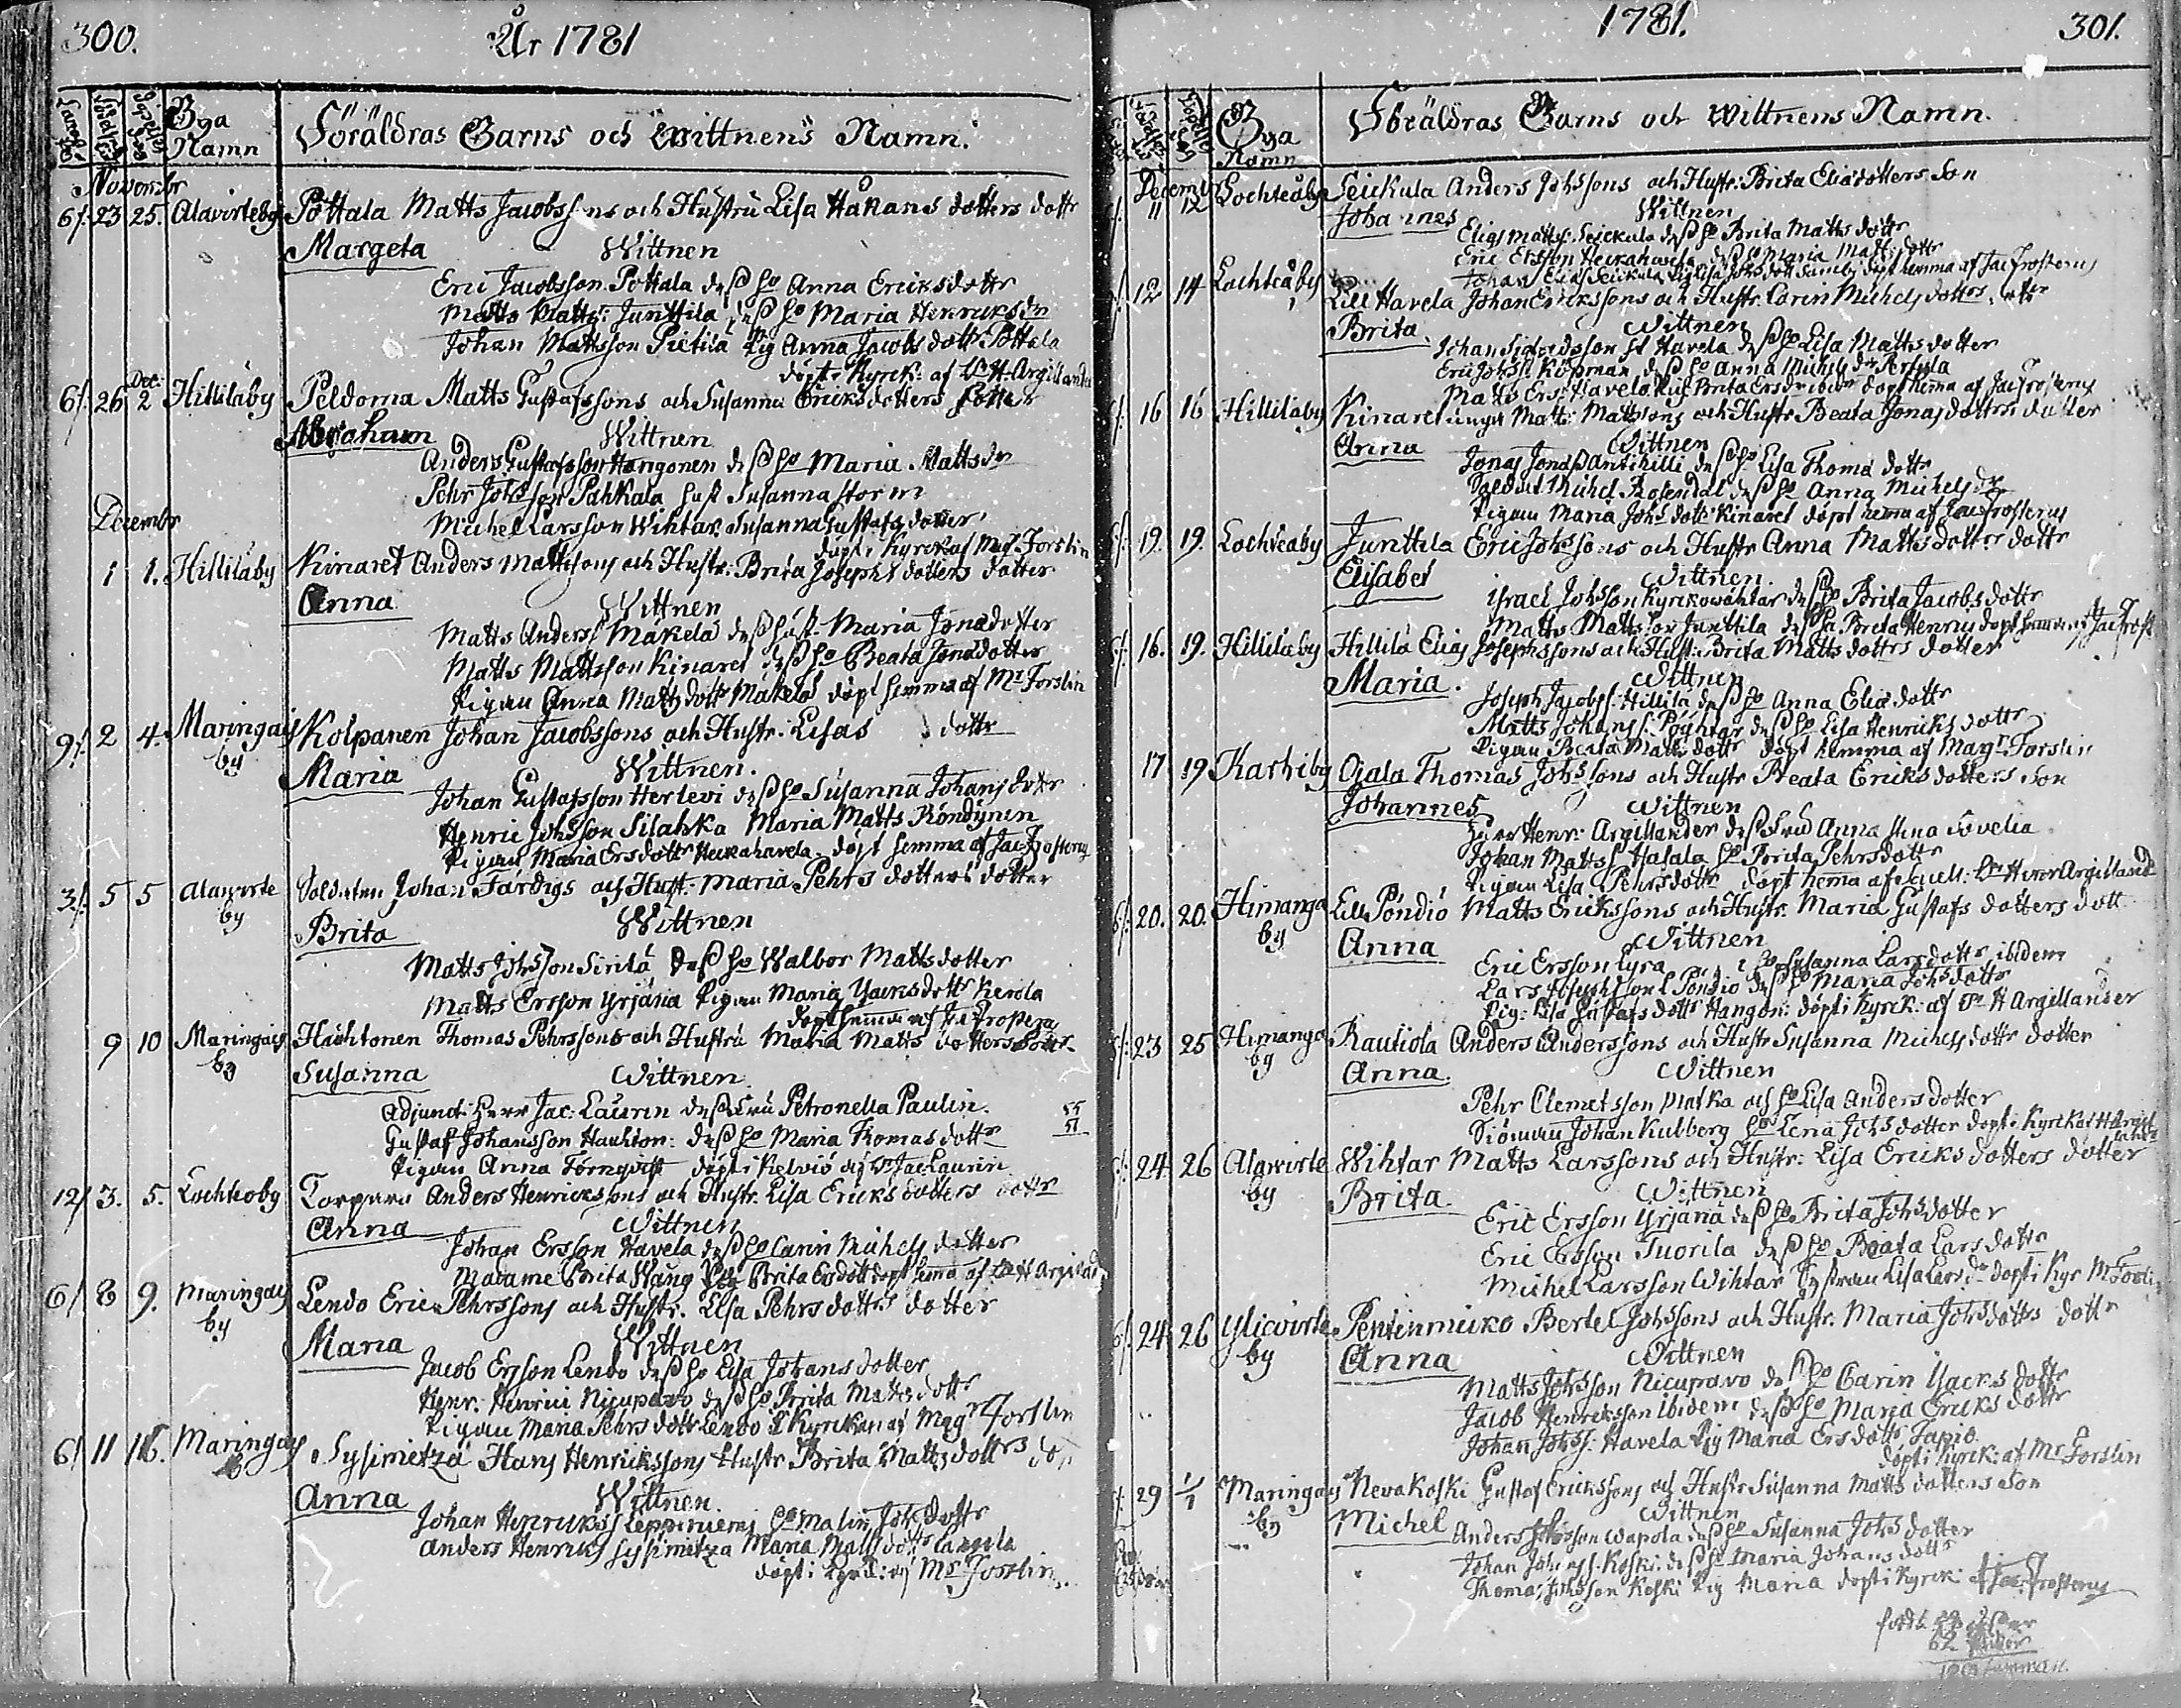 300.
År 1781
Bya Namn
Föräldras Barns och Wittnens Namn.
Novembr
6/. 23 25. Alavirteby Pottala Matts Jacobssons och Hustru Lisa Håkans dotters dottr
Margeta Wittnen
Eric Jacobsson Pottala deß ho Anna Ericksdottr
Matts Matts: Junttila, deß ho Maria Henricksdr
Johan Mattsson Pietila Pig Anna Jacobs dottr Pottala
döpt i Kyrck: af Dn H. Argillander
6/. 26 Dec. 2 Hilliläby Peldoma Matts Gustafssons och Susanna Ericksdotters
Abraham Wittnen
Anders Gustafsson Hangonen deß ho Maria Mattsdr
Pehr Johsson Pahkala hust Susanna Storm
Decembr
Michel Larsson Wihtar. Susanna Gustafs dotter
döpt i Kyrck af Mag. Forslin
1 1. Hilliläby Kinaret Anders Mattssons och Hustr: Brita Josephs dotters dotter
Anna Wittnen
Matts Anderss Makela deß hust. Maria Jonædotter
Matts Mattsson Kinaret deß ho Beata Jonædotter
Pigan Anna Matts dottr Makela döpt hemma af Mr Forslin
9/. 2 4. Maringais by Kolpanen Johan Jacobssons och Hustr. Lisas dottr
Maria Wittnen.
Johan Gustafsson Herlevi deß ho Susanna Johans dotter
Henric Johsson Silahka Maria Matts Röndynen
Pigan Maria Ersdottr Heickahavela döpt hemma af Jac Frosterus
3/. 5 5 Alawirte by Soldaten Johan Färdigs och Hustr. Maria Pehrs dotters dotter
Brita Wittnen
Matts Johsson Sirila deß ho Walbor Mattsdotter
Matts Ersson Yrjäna Pigan Maria Yacksdottr Kerola
döpt hemma af Jac Frosterus
9 10 Maringais by Hauhtonen Thomas Pehrssons och Hustru Maria Matts dotters dottr
Susanna Wittnen
Adjunct: Herr Jac: Laurin deß Fru Petronella Paulin.
55
51
Gustaf Johansson Hauhton: deß ho Maria Thomas dottr
Pigan Anna Törnqvist döpt i Kelviö af Dn Jac: Laurin
12/ 3. 5. Lochteby Torpare Anders Henrickssons och Hustr. Lisa Ericks dotters dottr
Anna Wittnen
Johan Ersson Havela deß ho Carin Michels dotter
Madame Brita Wang Pig Brita Ersdottr döpt hemma af Dn H Argilland
6/ 8 9. Maringais by Lendo Eric Pehrssons och Hustr. Elsa Pehrsdotters dotter
Maria Wittnen
Jacob Ersson Lendo deß ho Lisa Johans dotter
Henr: Henrici Nicuparvo deß ho Brita Matts dottr
Pigan Maria Pehrs dottr Lendo i Kyrckan af Magr Forslin
6/ 11 16. Maringais by Sysimetzä Hans Henrickssons Hustr Brita Matts dotters
Anna Wittnen.
Johan Henrickss Leppiniemi ho Malin Johsdottr
Anders Henricks Sysimetza Maria Matts dottr Langila
döpt i Kyrck: af Mr Forslin
1781.
301.
Bya Namn
Föräldras Barns och Wittnens Namn.
Decemb
11 12 Lochteåby Leickula Anders Johssons och Hustr. Brita Eliædotters Son
Johannes Wittnen
Elias Mattss. Leickula deß ho Brita Matts dottr
Eric Ersson Heickahavela deß ho Maria Matts dottr
Johan Elias Leickula döpt hemma af Jac Frosterus
12 14 Lochteåby Lill Havela Johan Erickssons och Hustr. Carin Michels dotters
Brita. Wittnen
Johan Sigfredsson st Havela deß ho Lisa Matts dotter
Eric Johss. Köpman deß ho Anna Michels dr
Matts Ers: Havela Pig Brita Ersdr ibidem döpt hemma af Jac Frosterus
16 16 Hilliläby Kinaret unger Matts: Mattssons och Hustr Beata Jonas dotters dotter
Anna Wittnen
Jonas Jonass Antihilli deß ho Lisa Thomæ dottr
Soldat Michel Rosendal deß ho Anna Michels dr
Pigan Maria Johs dottr Kinaret döpt hemma af Jac Frosterus
19. 19. Lochteaby Junttila Eric Johssons och Hustr Anna Matts dotters dottr
Elisabet Wittnen.
Israel Johsson Kyrckowäktar deß ho Brita Jacobs dottr
Matts Mattsson Junttila deß ho Brita Henrics döpt hemma af Jac Frost
16. 19. Hilliläby Hillilä Elias Josephssons och Hustr: Brita Matts dotters dotter
Maria. Wittnen
Joseph Jacobss: Hillilä deß ho Anna Eliæ dottr
Matts Johanss: Pöyhtar deß ho Lisa Henricks dottr
Pigan Beata Matts dottr döpt hemma af Magr Forslin
17 19 Karhiby Ojala Thomas Johssons och Hustr Beata Ericks dotters Son
Johannes Wittnen
Herr Henr: Argillander deß Fru Anna Stina Favelin
Johan Mattss Hasala ho Brita Pehrsdottr
Pigan Lisa Pehrsdottr döpt hemma af
20. 20. Himanga by Lill Pöndiö Matts Erickssons och Hustr. Maria Gustafs dotters dott
Anna Wittnen
Eric Ersson Lyra ho Susanna Larsdottr ibidem
Lars Josephsson l Pöndiö deß ho Maria Johs dottr
Pig: Lisa Gustafs dottr Hangon: döpt i Kyrck: af Dn H Argillander
23 25 Himanga by Rautiola Anders Anderssons och Hustr Susanna Michels dottr dotter
Anna. Wittnen
Pehr Clemetsson Matka och ho Lisa Anders dotter
Siöman Johan Kulberg ho Lena Johs dotter döpt i Kyrck af H Argillander
24. 26 Alawirte by Wihtar Matts Larssons och Hustr: Lisa Ericks dotters dotter
Brita. Wittnen
Eric Ersson Yrjäna deß ho Brita Johsdotter
Eric Ersson Tuorila deß ho Beata Lars dottr
Michel Larsson Wihtar Systran Lisa Lars dr döpt i Kyr Mr Forslin
24. 26 Yliwirte by Pentinmicko Bertel Johssons och Hustr: Maria Johsdotters dottr
Anna Wittnen
Matts Johsson Nicuparvo deß ho Carin Yacks dottr
Jacob Henricksson ibidem deß ho Maria Ericks dottr
Johan Johss: Havela Pig Maria Ersdottr Tapio
döpt i Kyrck: af Mr Forslin
29 1/1 Maringais by Nevakoski Gustaf Erickssons och Hustr Susanna Matts dotters Son
Michel Wittnen
Anders Johsson Wapola deß ho Susanna Johs dotter
Johan Johanss. Koski: deß ho Maria Johans dottr
Thomas Johsson Koski Pig Maria döpt i Kyrck: af Jac: Frosterus
62